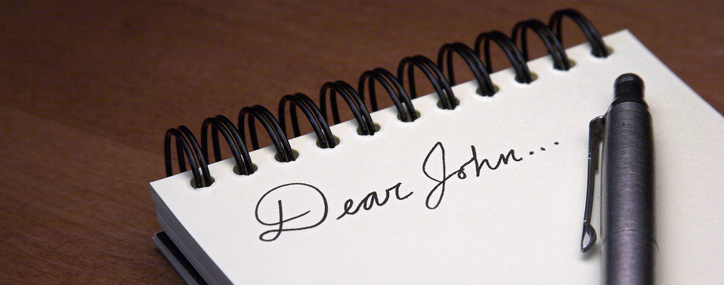 Dear John...